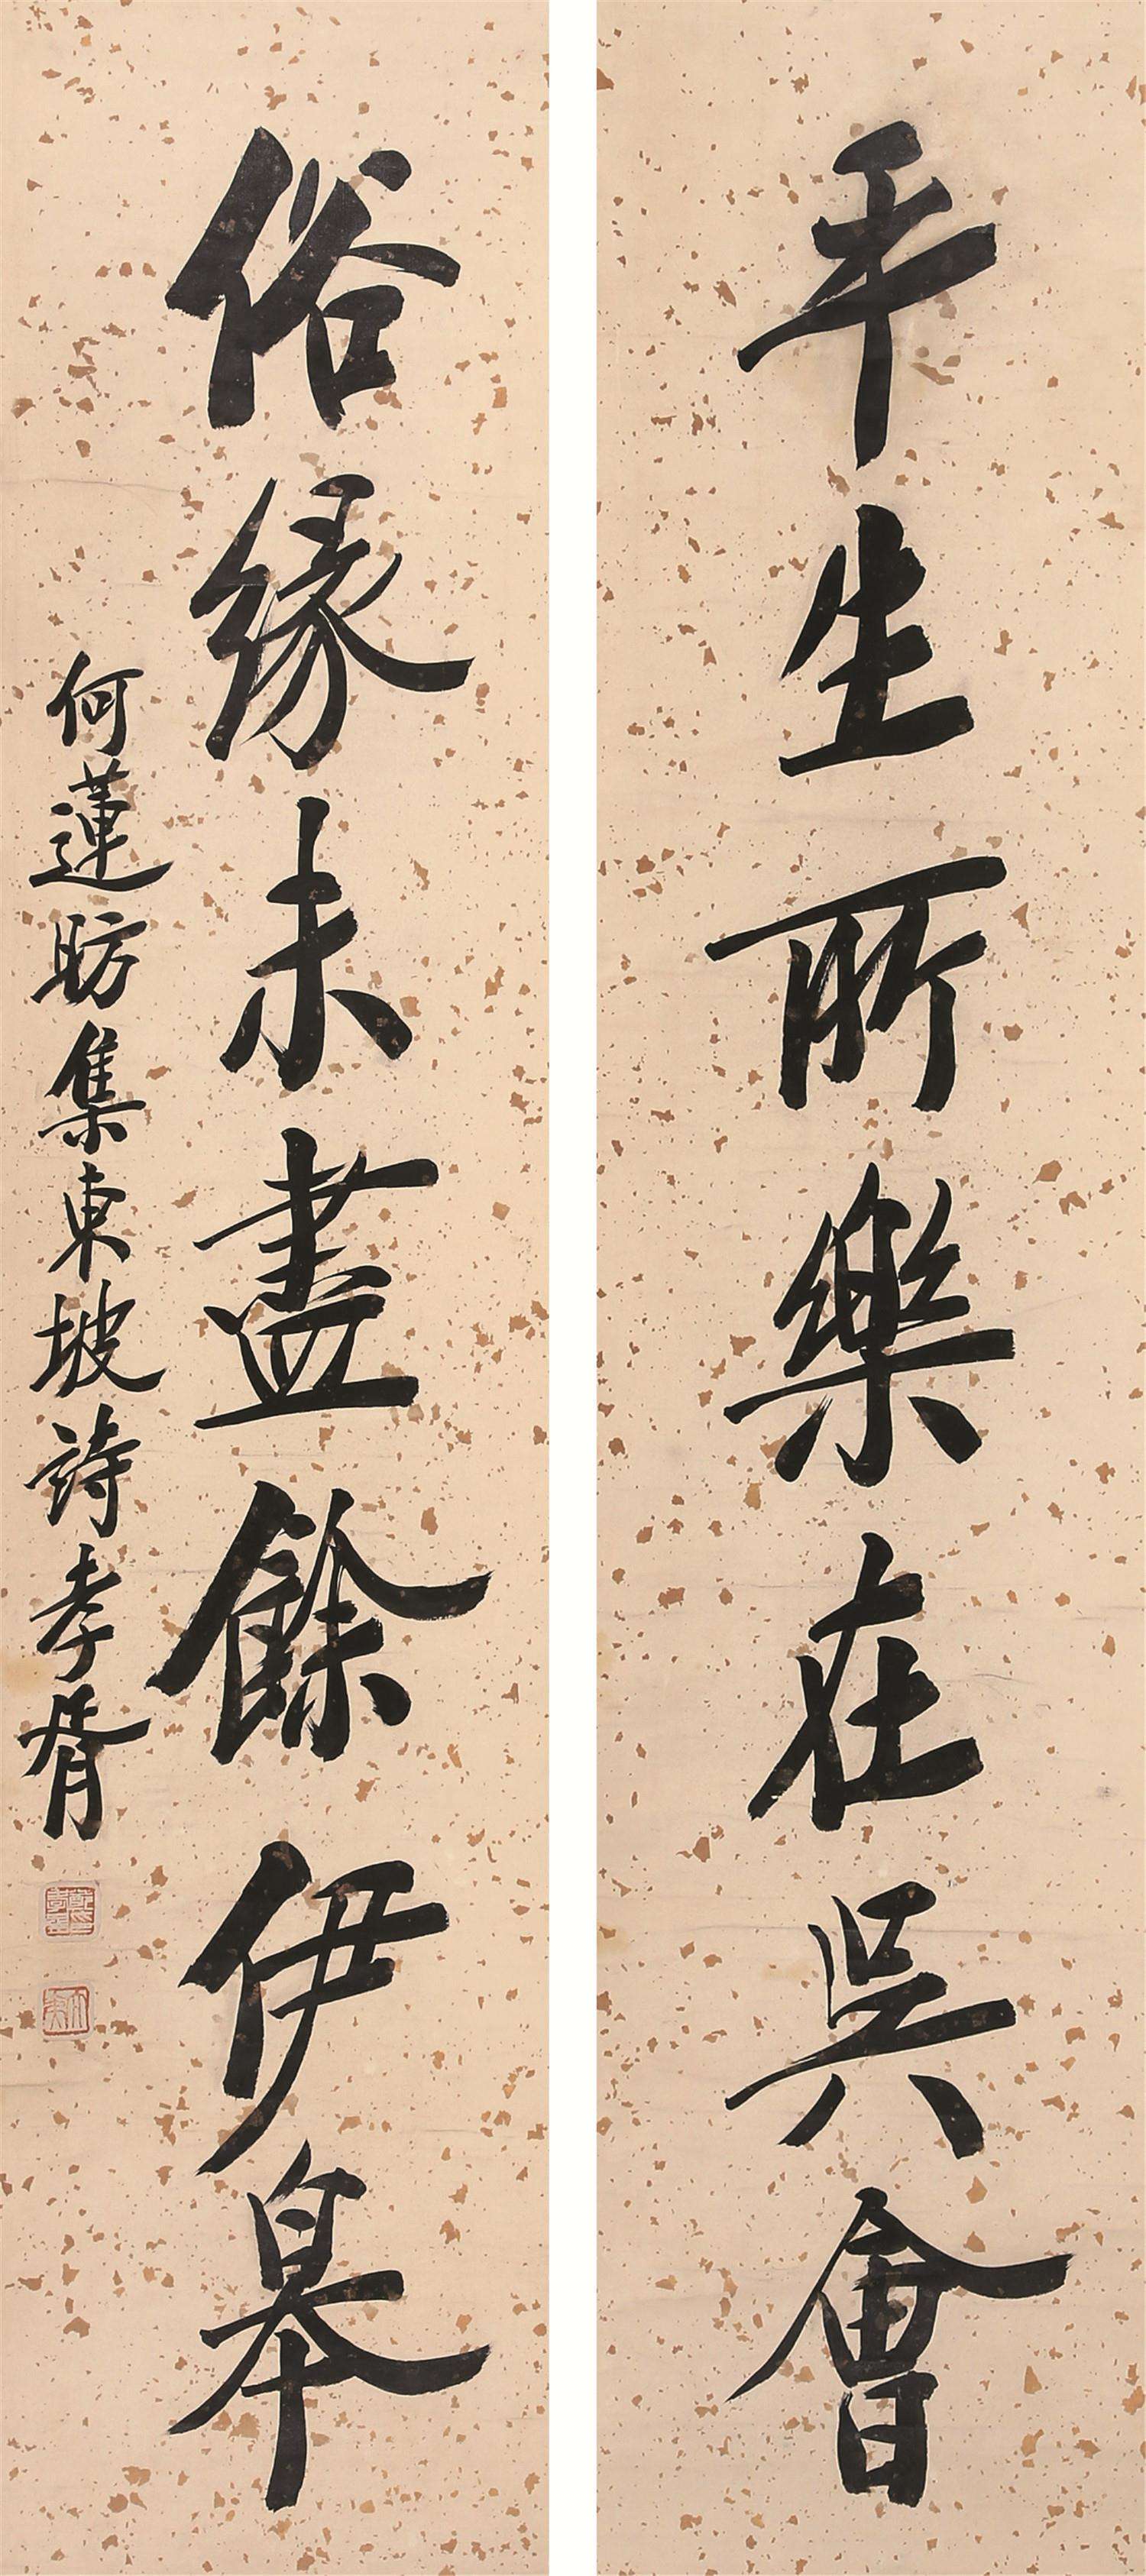 平生所樂在吳會
俗緣未盡餘伊皋
何蓮昉集東坡詩孝胥